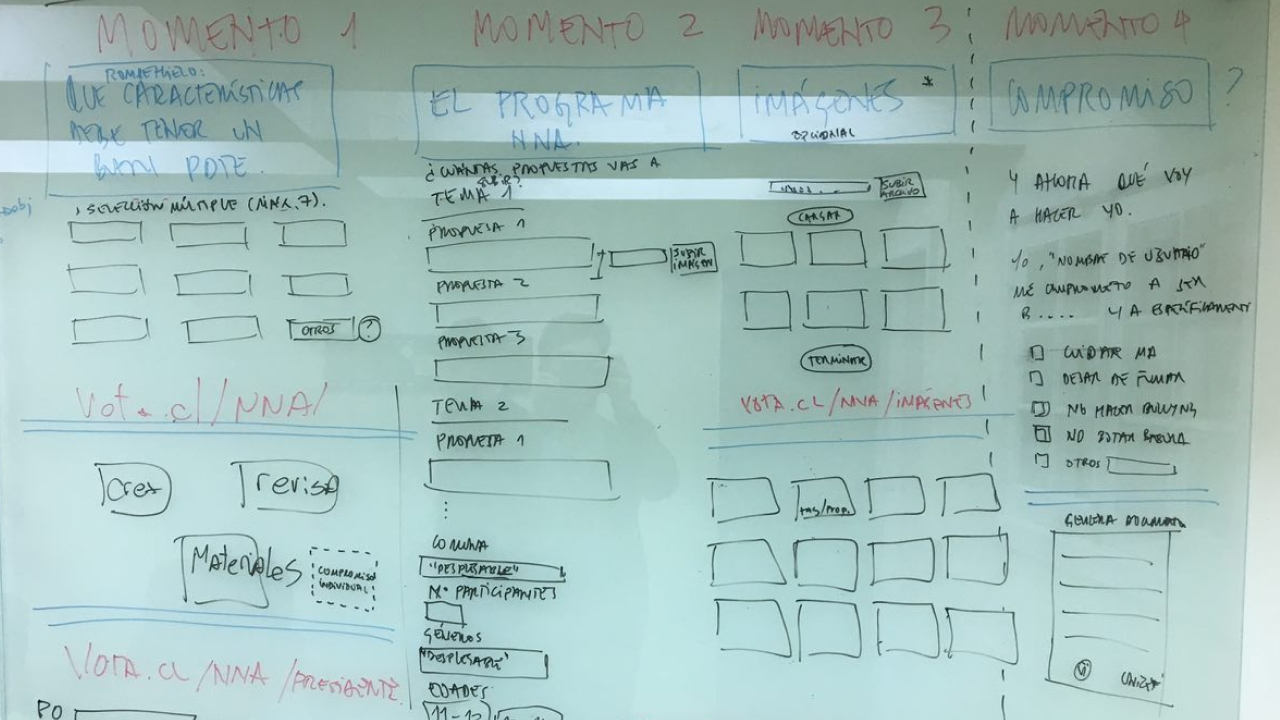 MOMENTO 1
ROMPEHIELO:
QUE CARACTERÍSTICAS
DEBE TENER UN
SELECCIÓN MÚLTIPLE (MAX, 7).
OTROS
?
Vota.cl/NNA/
Crea
revisa
Materiales
COMPROMISO
INDIVIDUAL
VOTA.CL/NNA/PRESIDENTE
PO
MOMENTO 2
EL PROGRAMA
NNA.
¿CUÁNTAS PROPUESTAS VAS A
SUBIR?
TEMA 1
PROPUESTA 1
SUBIR
IMAGEN
PROPUESTA 2
PROPUESTA 3
TEMA 2
PROPUESTA 1
COMUNA
"DESPLEGABLE"
Nº PARTICIPANTES
GÉNEROS
"DESPLEGABLE"
EDADES
11-12
MOMENTO 3
IMÁGENES *
OPCIONAL
SUBIR
ARCHIVO
CARGAR
TERMINAR
VOTA.CL/NNA/IMÁGENES
tag/prop.
MOMENTO 4
COMPROMISO ?
Y AHORA QUÉ VOY
A HACER YO.
YO, "NOMBRE DE USUARIO"
ME COMPROMETO A SER
Y A ESPECÍFICAMENTE
CUIDAR MA
DEJAR DE FUMAR
NO HACER BULLYING
NO BOTAR BASURA
OTROS
GENERA DOCUMENTO